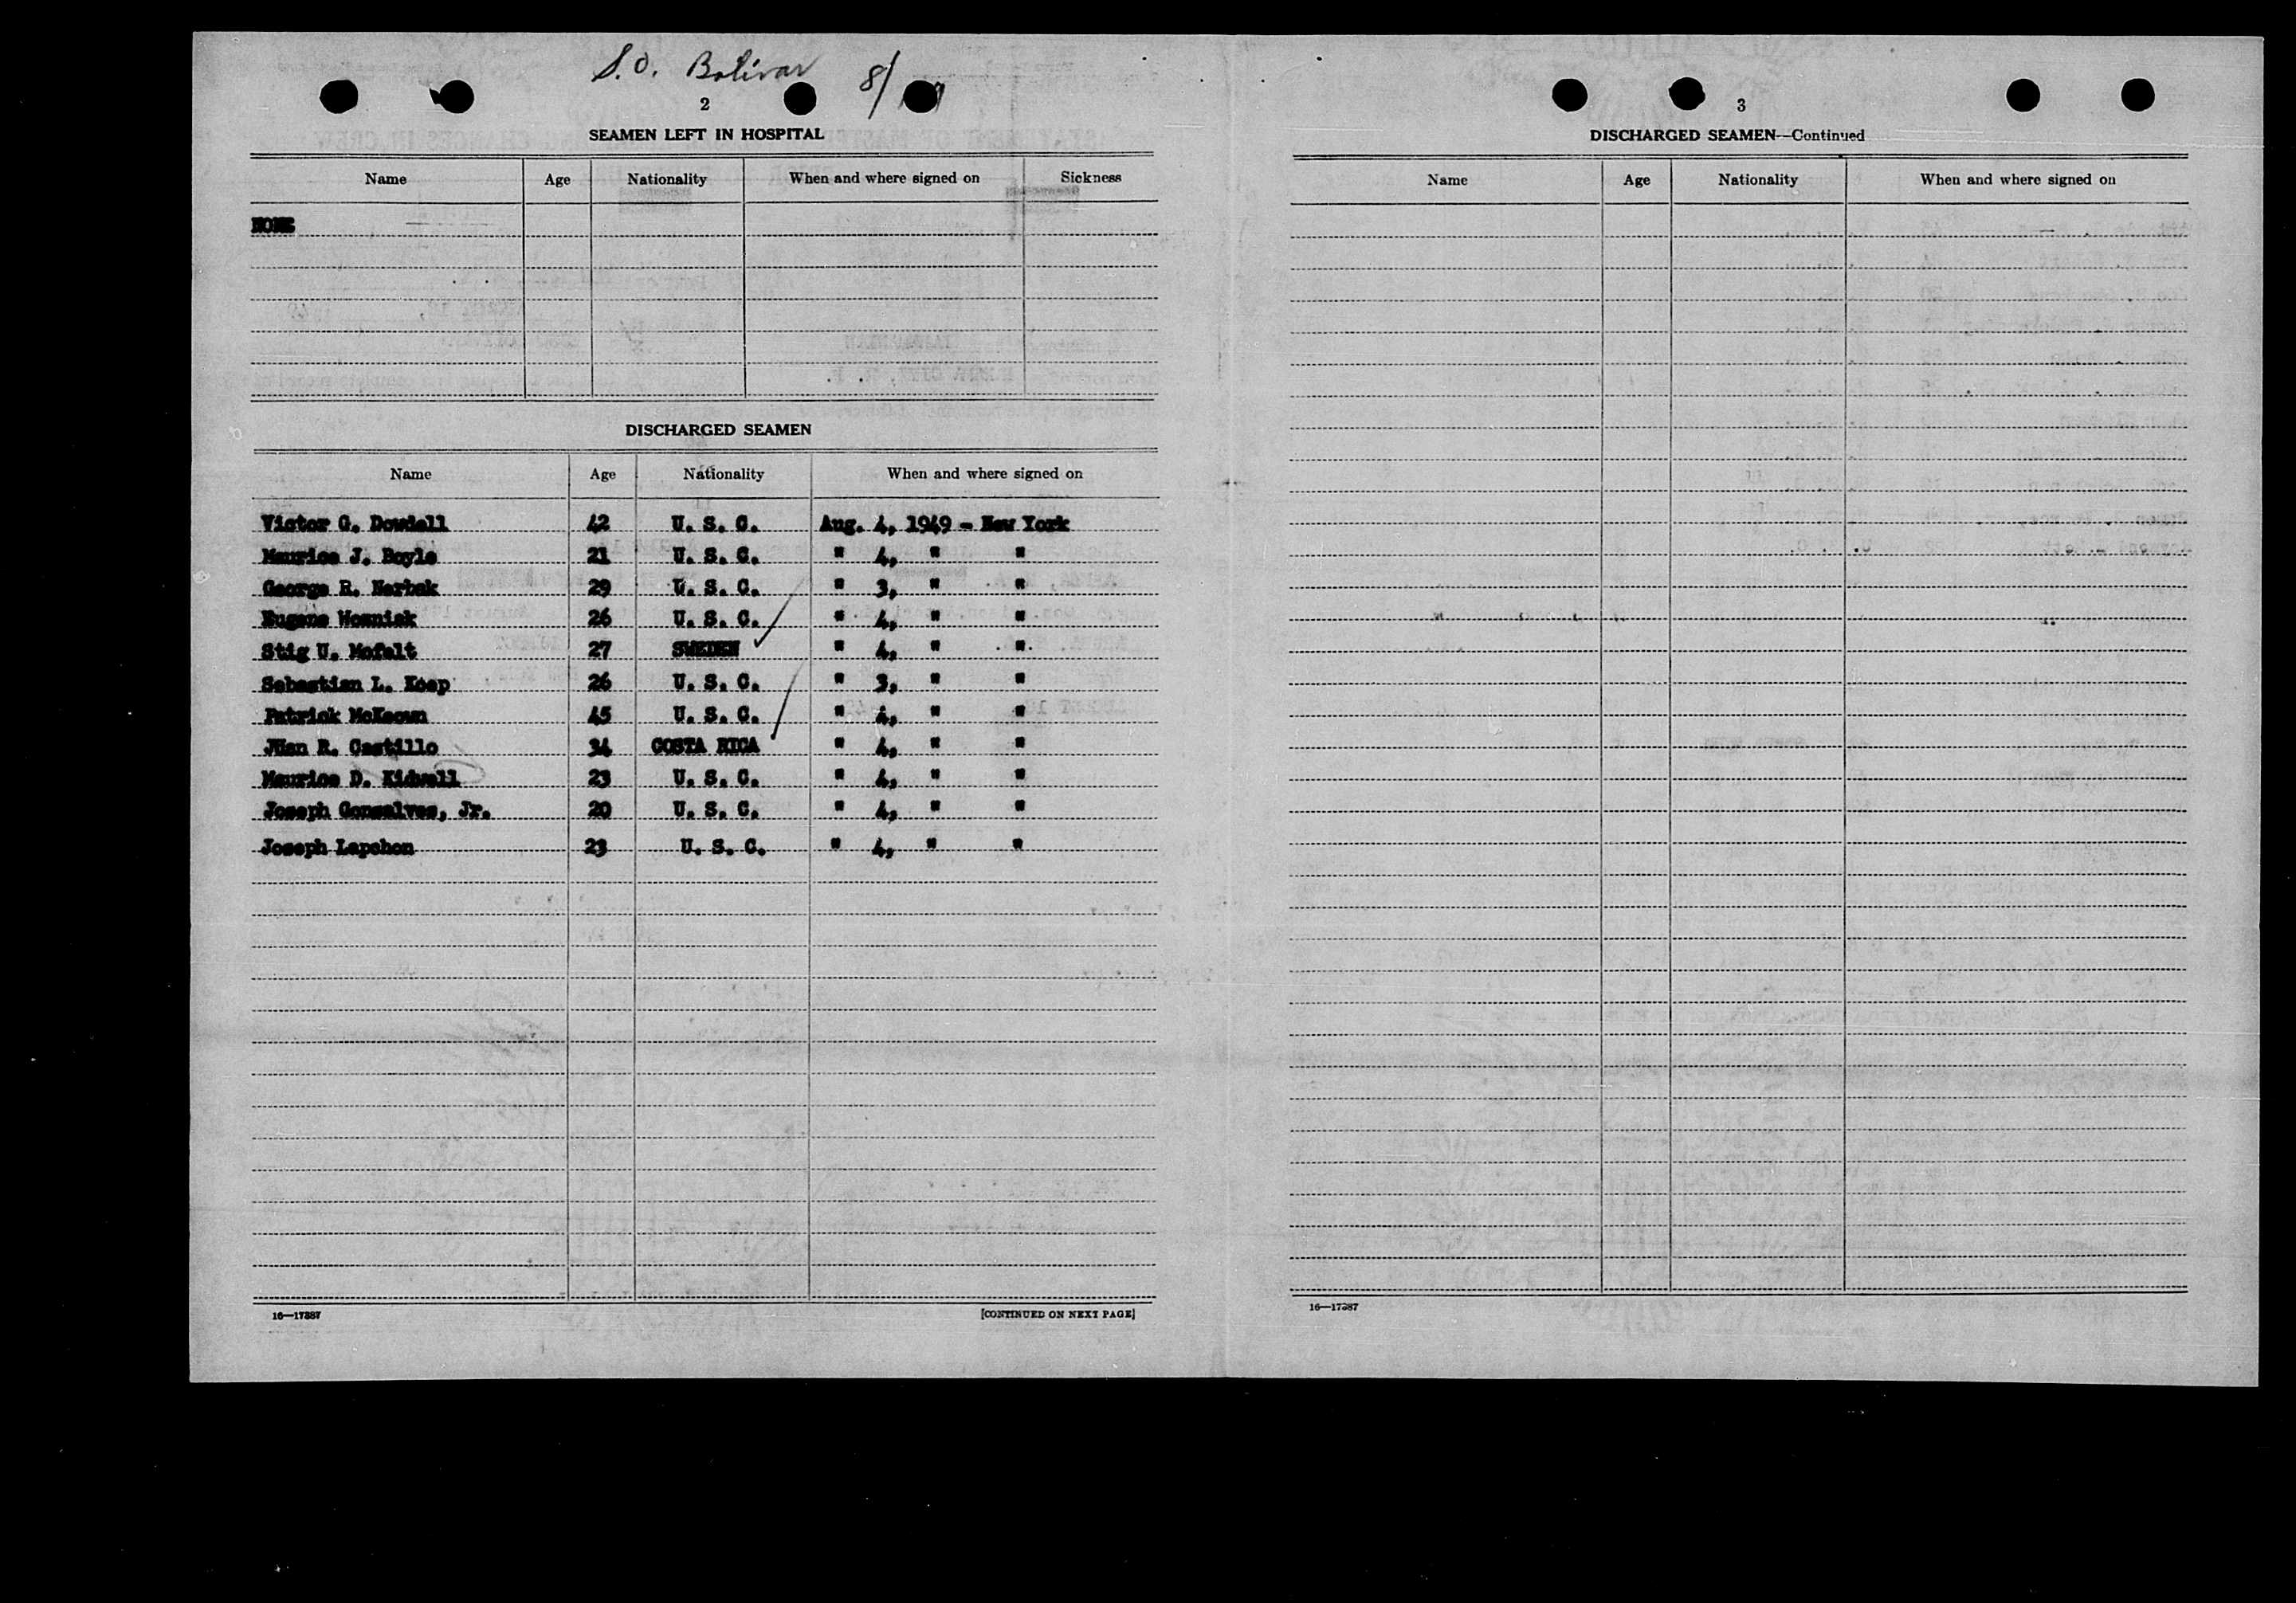 S.O. Bolivar 8/
2
SEAMEN LEFT IN HOSPITAL
Name Age Nationality When and where signed on Sickness
NONE
DISCHARGED SEAMEN
Name Age Nationality When and where signed on
Victor G. Dowdell 42 U. S. C. Aug. 4, 1949 - New York
Maurice J. Boyle 21 U. S. C. " 4, " "
George R. Harbak 29 U. S. C. " 3, " "
Eugene Wozniak 26 U. S. C. " 4, " "
Stig U. Mofalt 27 SWEDEN " 4, " "
Sebastian L. Koep 26 U. S. C. " 3, " "
Patrick McKeown 45 U. S. C. " 4, " "
Juan R. Castillo 34 COSTA RICA " 4, " "
Maurice D. Kidwell 23 U. S. C. " 4, " "
Joseph Gonsalves, Jr. 20 U. S. C. " 4, " "
Joseph Lapchon 23 U. S. C. " 4, " "
16—17387 [CONTINUED ON NEXT PAGE]
3
DISCHARGED SEAMEN—Continued
Name Age Nationality When and where signed on
16—17387